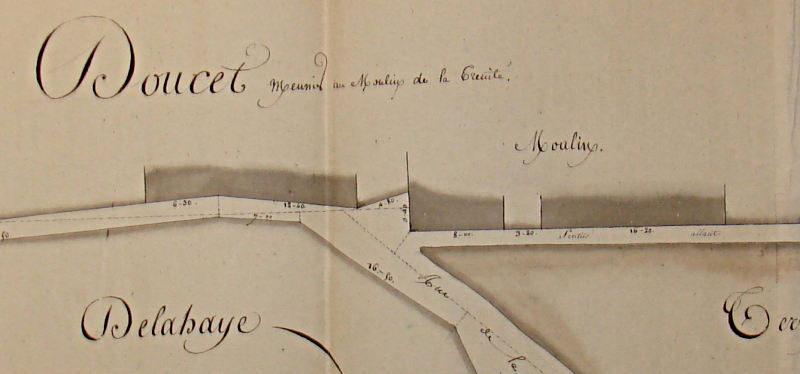 Doucet Meunier au Moulin de la Trenité.
Moulin.
6-30.
12-20.
4-80.
8-00.
3-20.
Sentier
16-20.
allant
50.
16-50.
Rue
de la
Delahaye
Ter